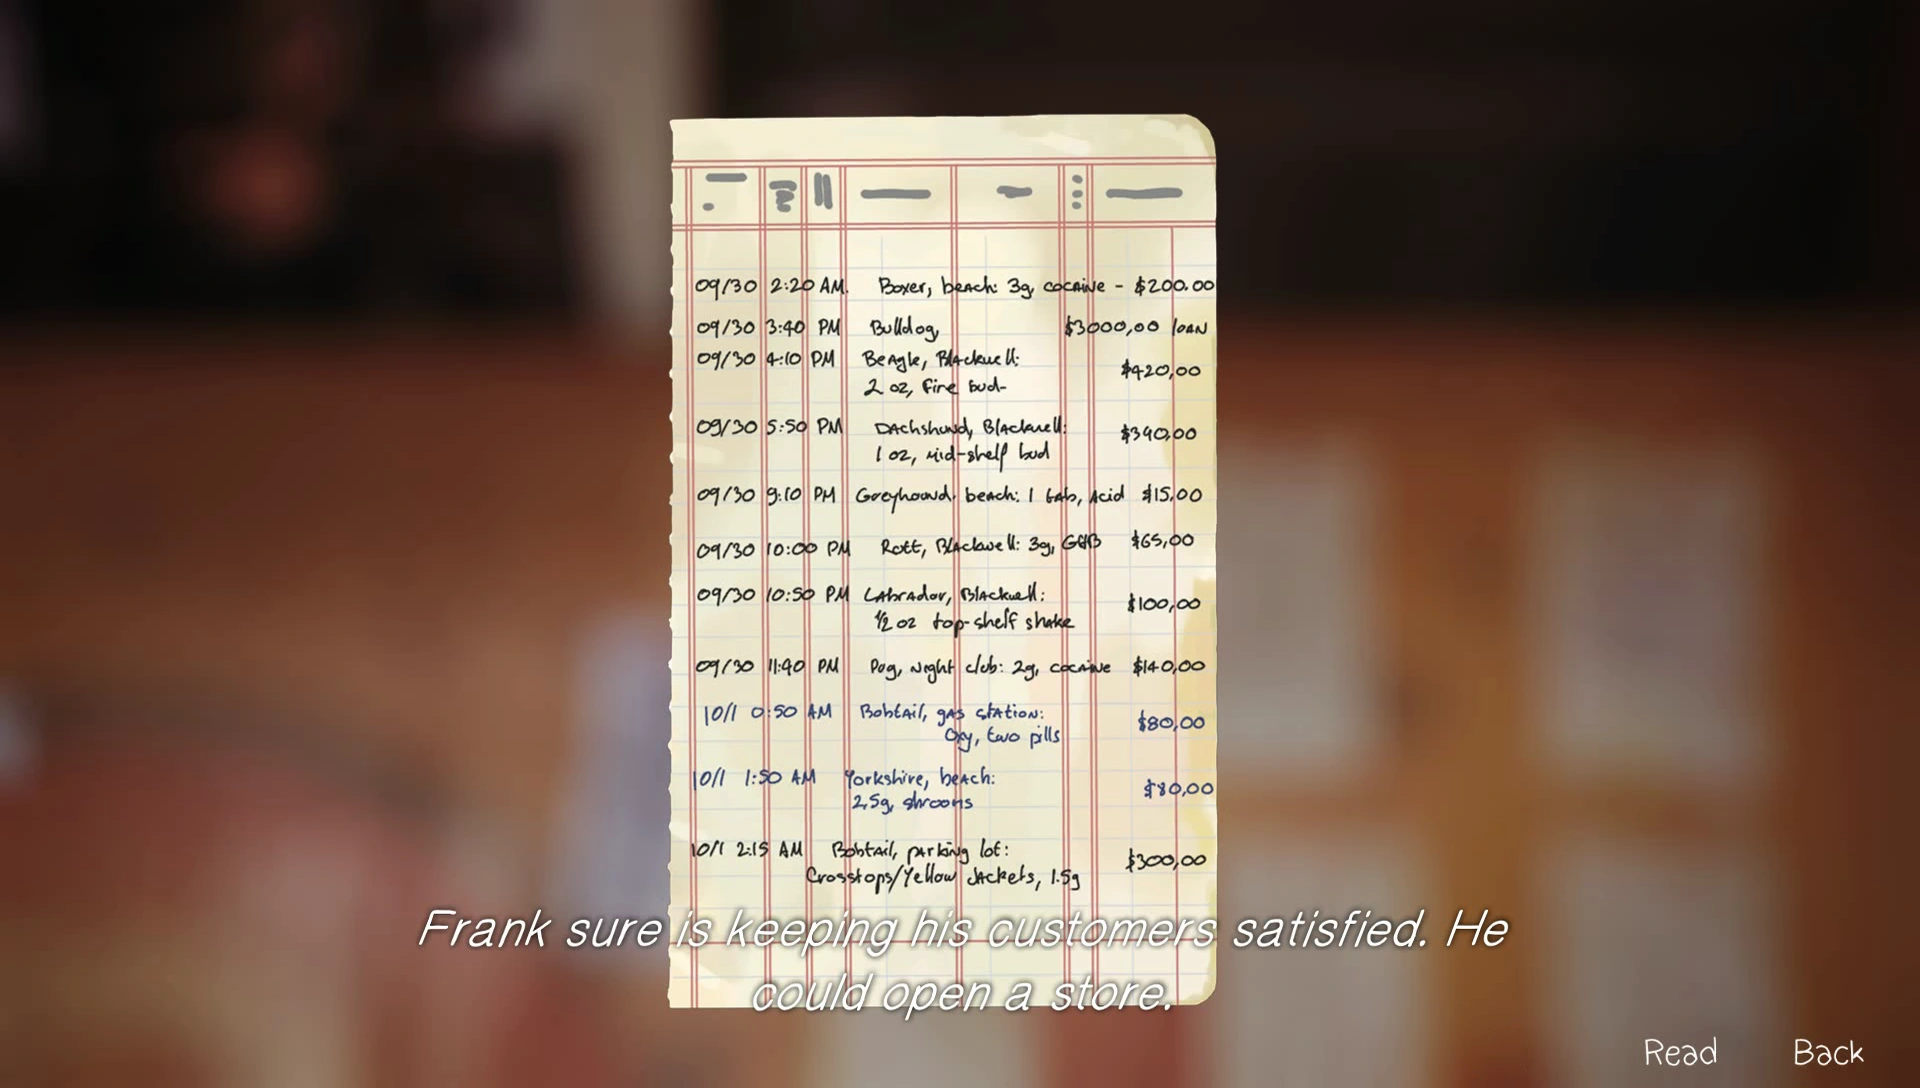 09/30 2:20 AM. Boxer, beach: 3g, cocaine - $200.00
09/30 3:40 PM Bulldog, $3000,00 loan
09/30 4:10 PM Beagle, Blackwell:
2 oz, fire bud- $420,00
09/30 5:50 PM Dachshund, Blackwell: $340,00
1 oz, mid-shelf bud
09/30 9:10 PM Greyhound, beach: 1 tab, acid $15,00
09/30 10:00 PM Rott, Blackwell: 3g, GHB $65,00
09/30 10:50 PM Labrador, Blackwell: $100,00
1/2 oz top-shelf shake
09/30 11:40 PM Pug, night club: 2g, cocaine $140,00
10/1 0:50 AM Bobtail, gas station: $80,00
Oxy, two pills
10/1 1:50 AM Yorkshire, beach: $80,00
2,5g, shrooms
10/1 2:15 AM Bobtail, parking lot: $300,00
Crosstops/Yellow Jackets, 1.5g
Frank sure is keeping his customers satisfied. He
could open a store.
Read Back